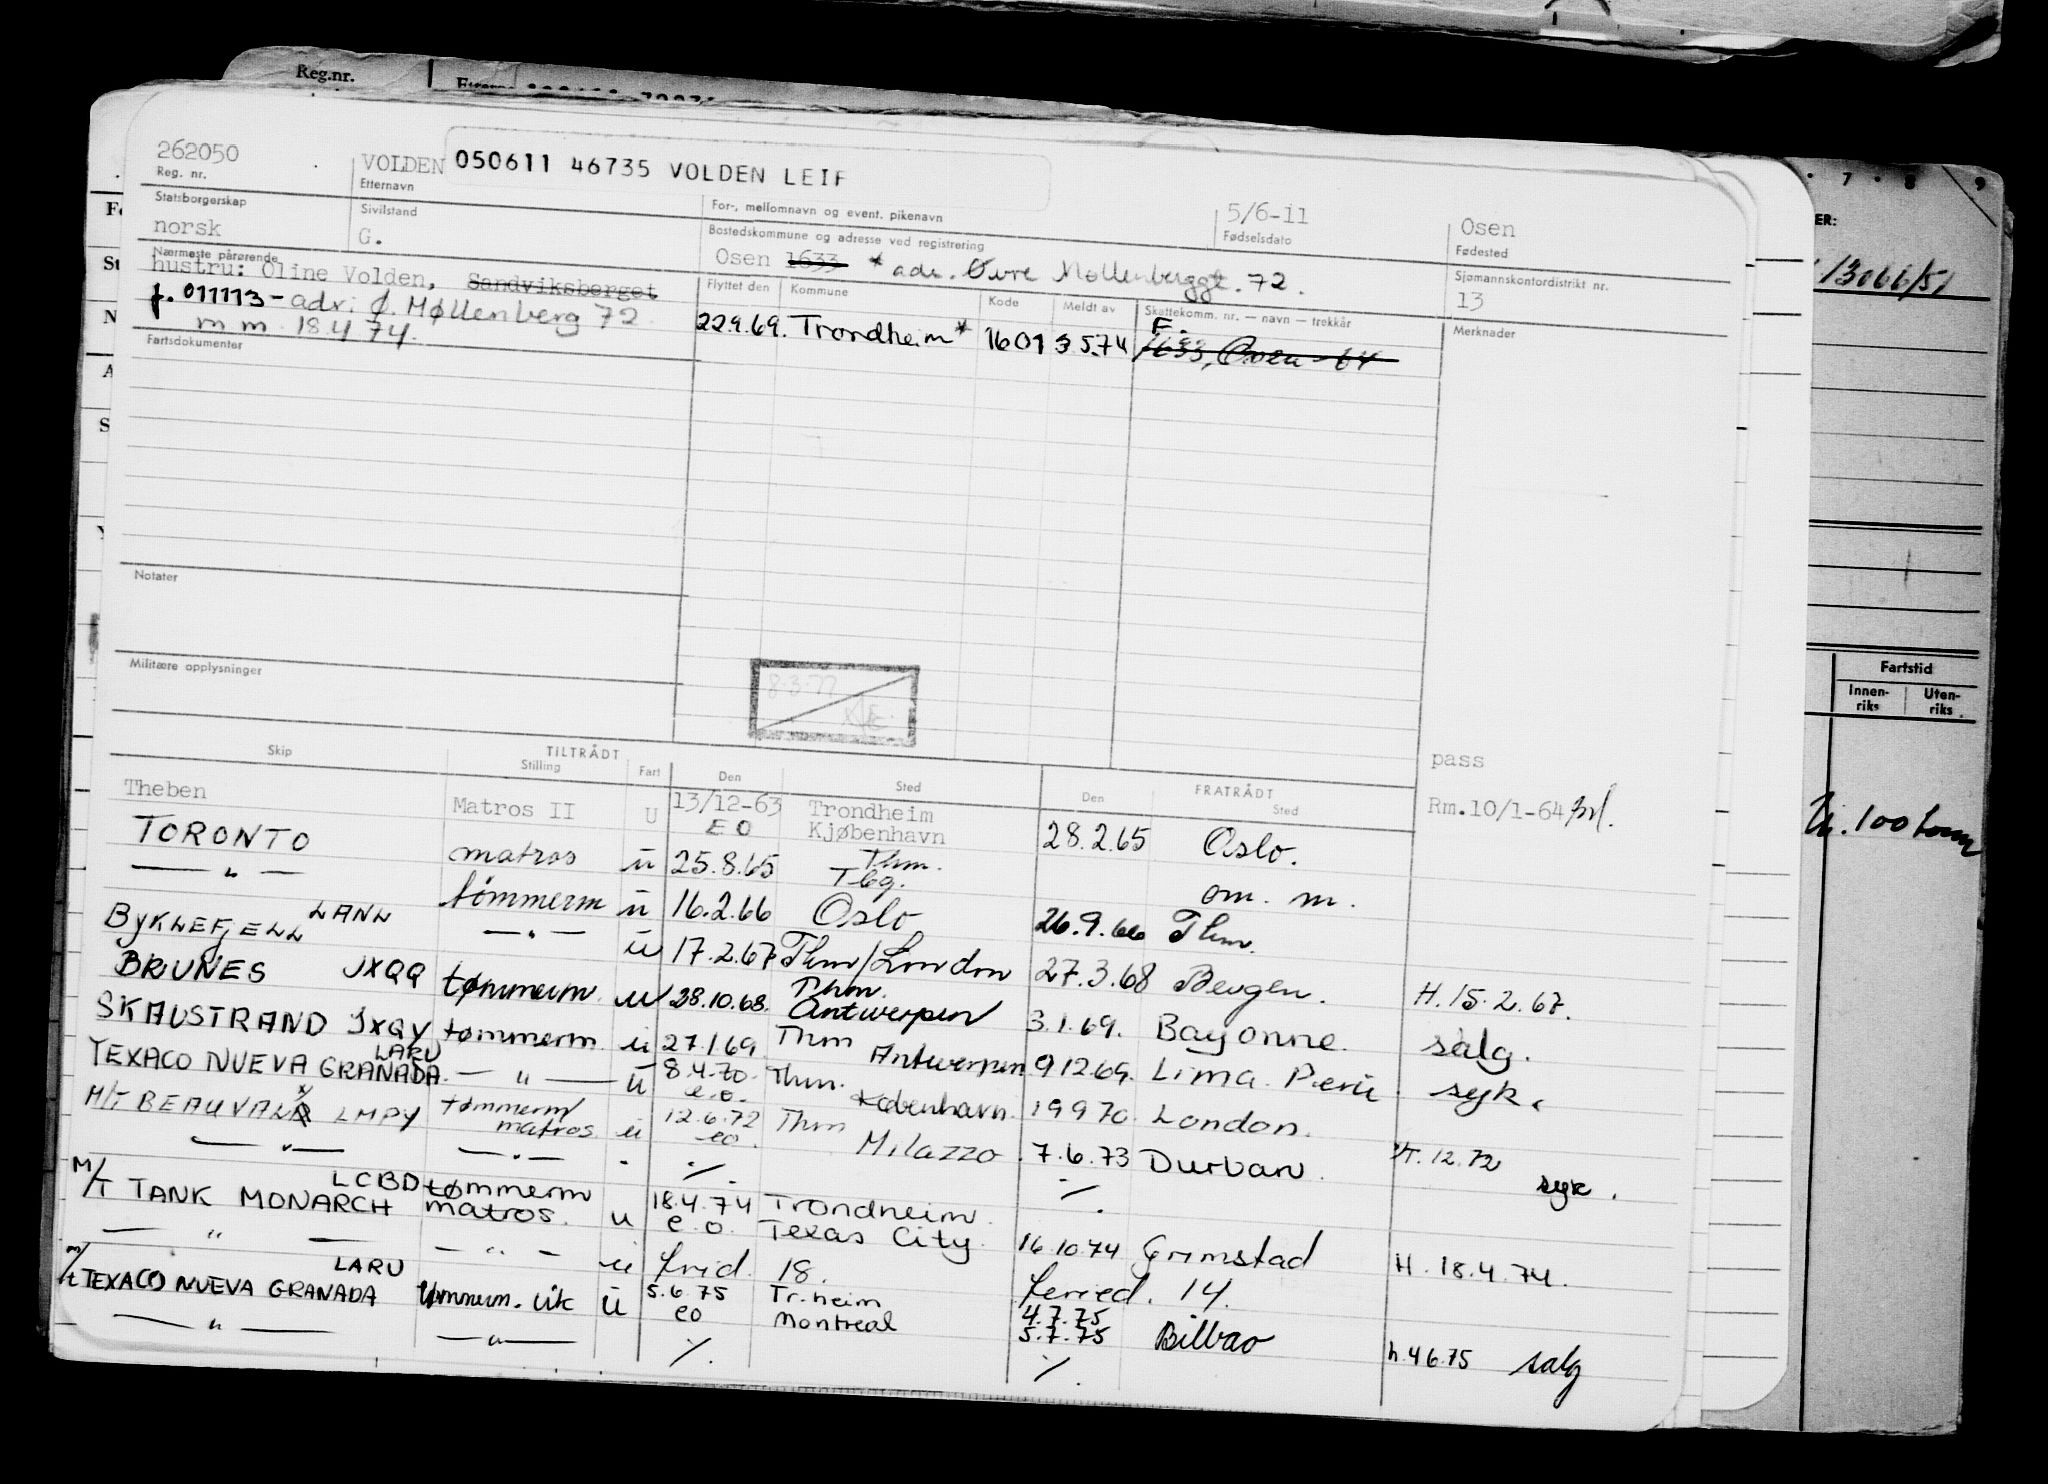 Reg.nr.
262050
Reg. nr.
VOLDEN
050611 46735 VOLDEN LEIF
Etternavn
For-, mellomnavn og event. pikenavn
5/6-11
Fødselsdato
Osen
Fødested
Statsborgerskap
norsk
Sivilstand
G.
Bostedskommune og adresse ved registrering
Osen 1633 * adr. Øvre Møllenberggt. 72.
Sjømannskontordistrikt nr.
13
Nærmeste pårørende
hustru: Oline Volden, Sandviksberget
f. 011113 - adr: Ø. Møllenberg 72
m m 18.4.74.
Flyttet den
Kommune
Kode
Meldt av
Skattekomm. nr. — navn — trekkår
Merknader
22.9.69. Trondheim* 1601 3.5.74 F.
1633, Osen - 64
Fartsdokumenter
Notater
Militære opplysninger
8.3.77
pass
TILTRÅDT
FRATRÅDT
Skip Stilling Fart Den Sted Den Sted
Theben Matros II U 13/12-63 Trondheim
EO Kjøbenhavn 28.2.65 Oslo. Rm.10/1-64
TORONTO matros ü 25.8.65 Thm.
Tbg. om. m.
— " — tømmerm ü 16.2.66 Oslo 26.9.66 Thm.
BYKLEFJELL LANL — " — ü 17.2.67 Thm/London 27.3.68 Bergen. H. 15.2.67.
BRUNES JXQQ tømmerm. u 28.10.68. Thm.
Antwerpen 3.1.69. Bayonne. salg.
SKAUSTRAND JXQY tømmerm. u 27.1.69 Thm Antwerpen 9.12.69. Lima. Peru syk.
TEXACO NUEVA GRANADA. LARU — " — ü 8.4.70. Thm.
e.o. København. 19.9.70. London.
M/T BEAUVALX LMPY tømmerm/
matros. u 12.6.72
eo. Thm Milazzo. 7.6.73 Durban. 12.72 syk.
— " — — " — . ./. ./.
M/T TANK MONARCH LCBD tømmerm
matros. u 18.4.74 Trondheim.
e.o. Texas City. 16.10.74 Grimstad H. 18.4.74.
— " — — " — u frid. 18. feried. 14.
m/t TEXACO NUEVA GRANADA LARU tømmerm. vik ü 5.6.75 Tr.heim
eo Montreal 4.7.75
5.7.75 Bilbao h.4.6.75 salg
— " — — " — ./. ./.
7 . 8 9
ER:
13066/51
Fartstid
Innen-
riks
Uten-
riks